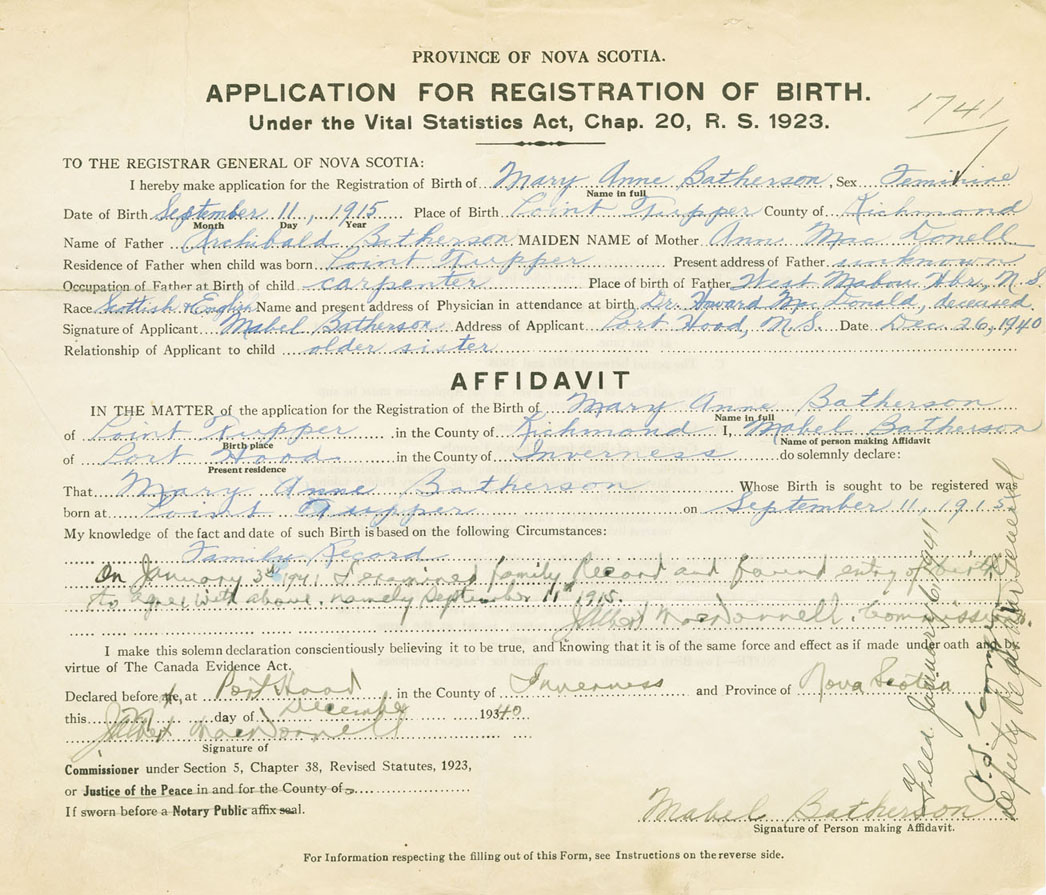 PROVINCE OF NOVA SCOTIA.
APPLICATION FOR REGISTRATION OF BIRTH.
1741
Under the Vital Statistics Act, Chap. 20, R. S. 1923.
TO THE REGISTRAR GENERAL OF NOVA SCOTIA:
I hereby make application for the Registration of Birth of Mary Anne Batherson, Sex Feminine
Name in full
Date of Birth September 11, 1915 Place of Birth Point Tupper County of Richmond
Month Day Year
Name of Father Archibald Batherson MAIDEN NAME of Mother Ann MacDonell
Residence of Father when child was born Point Tupper Present address of Father unknown
Occupation of Father at Birth of child carpenter Place of birth of Father West Mabou Hbr., N.S.
Race Scottish & English Name and present address of Physician in attendance at birth Dr. Howard MacDonald, deceased
Signature of Applicant Mabel Batherson Address of Applicant Port Hood, N.S. Date Dec. 26, 1940
Relationship of Applicant to child older sister
AFFIDAVIT
IN THE MATTER of the application for the Registration of the Birth of Mary Anne Batherson
Name in full
of Point Tupper in the County of Richmond I, Mabel Batherson
Birth place (Name of person making Affidavit
of Port Hood in the County of Inverness do solemnly declare:
Present residence
That Mary Anne Batherson Whose Birth is sought to be registered was
born at Point Tupper on September 11, 1915
My knowledge of the fact and date of such Birth is based on the following Circumstances:
Family Record
On January 3rd 1941 I examined family Record and found entry of birth
to agree with above, namely September 11th 1915.
J Albert MacDonnell, Commissioner
I make this solemn declaration conscientiously believing it to be true, and knowing that it is of the same force and effect as if made under oath and by
virtue of The Canada Evidence Act.
Declared before me, at Port Hood in the County of Inverness and Province of Nova Scotia
this day of December 1940
J Albert MacDonnell
Signature of
Commissioner under Section 5, Chapter 38, Revised Statutes, 1923,
or Justice of the Peace in and for the County of
If sworn before a Notary Public affix seal.
Mabel Batherson
Signature of Person making Affidavit.
For Information respecting the filling out of this Form, see Instructions on the reverse side.
Filed January 6, 1941
Deputy Registrar General